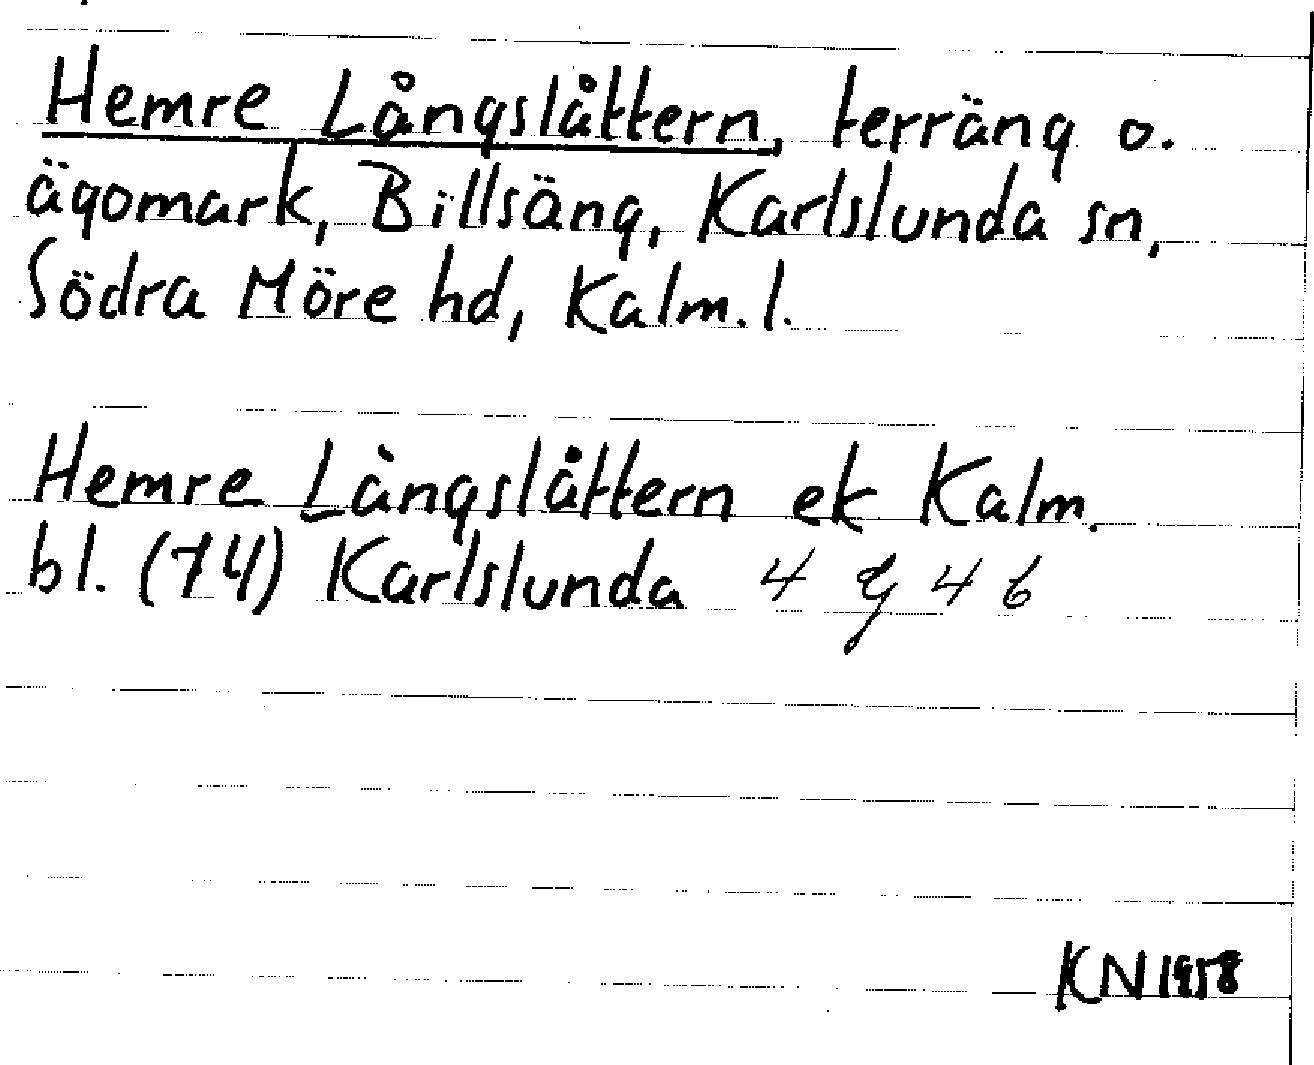 Hemre Långslåttern, terräng o.
ägomark, Billsäng, Karlslunda sn,
Södra Möre hd, Kalm. l.
Hemre Långslåttern ek Kalm.
bl. (74) Karlslunda 4 g 4 b
KN 1958